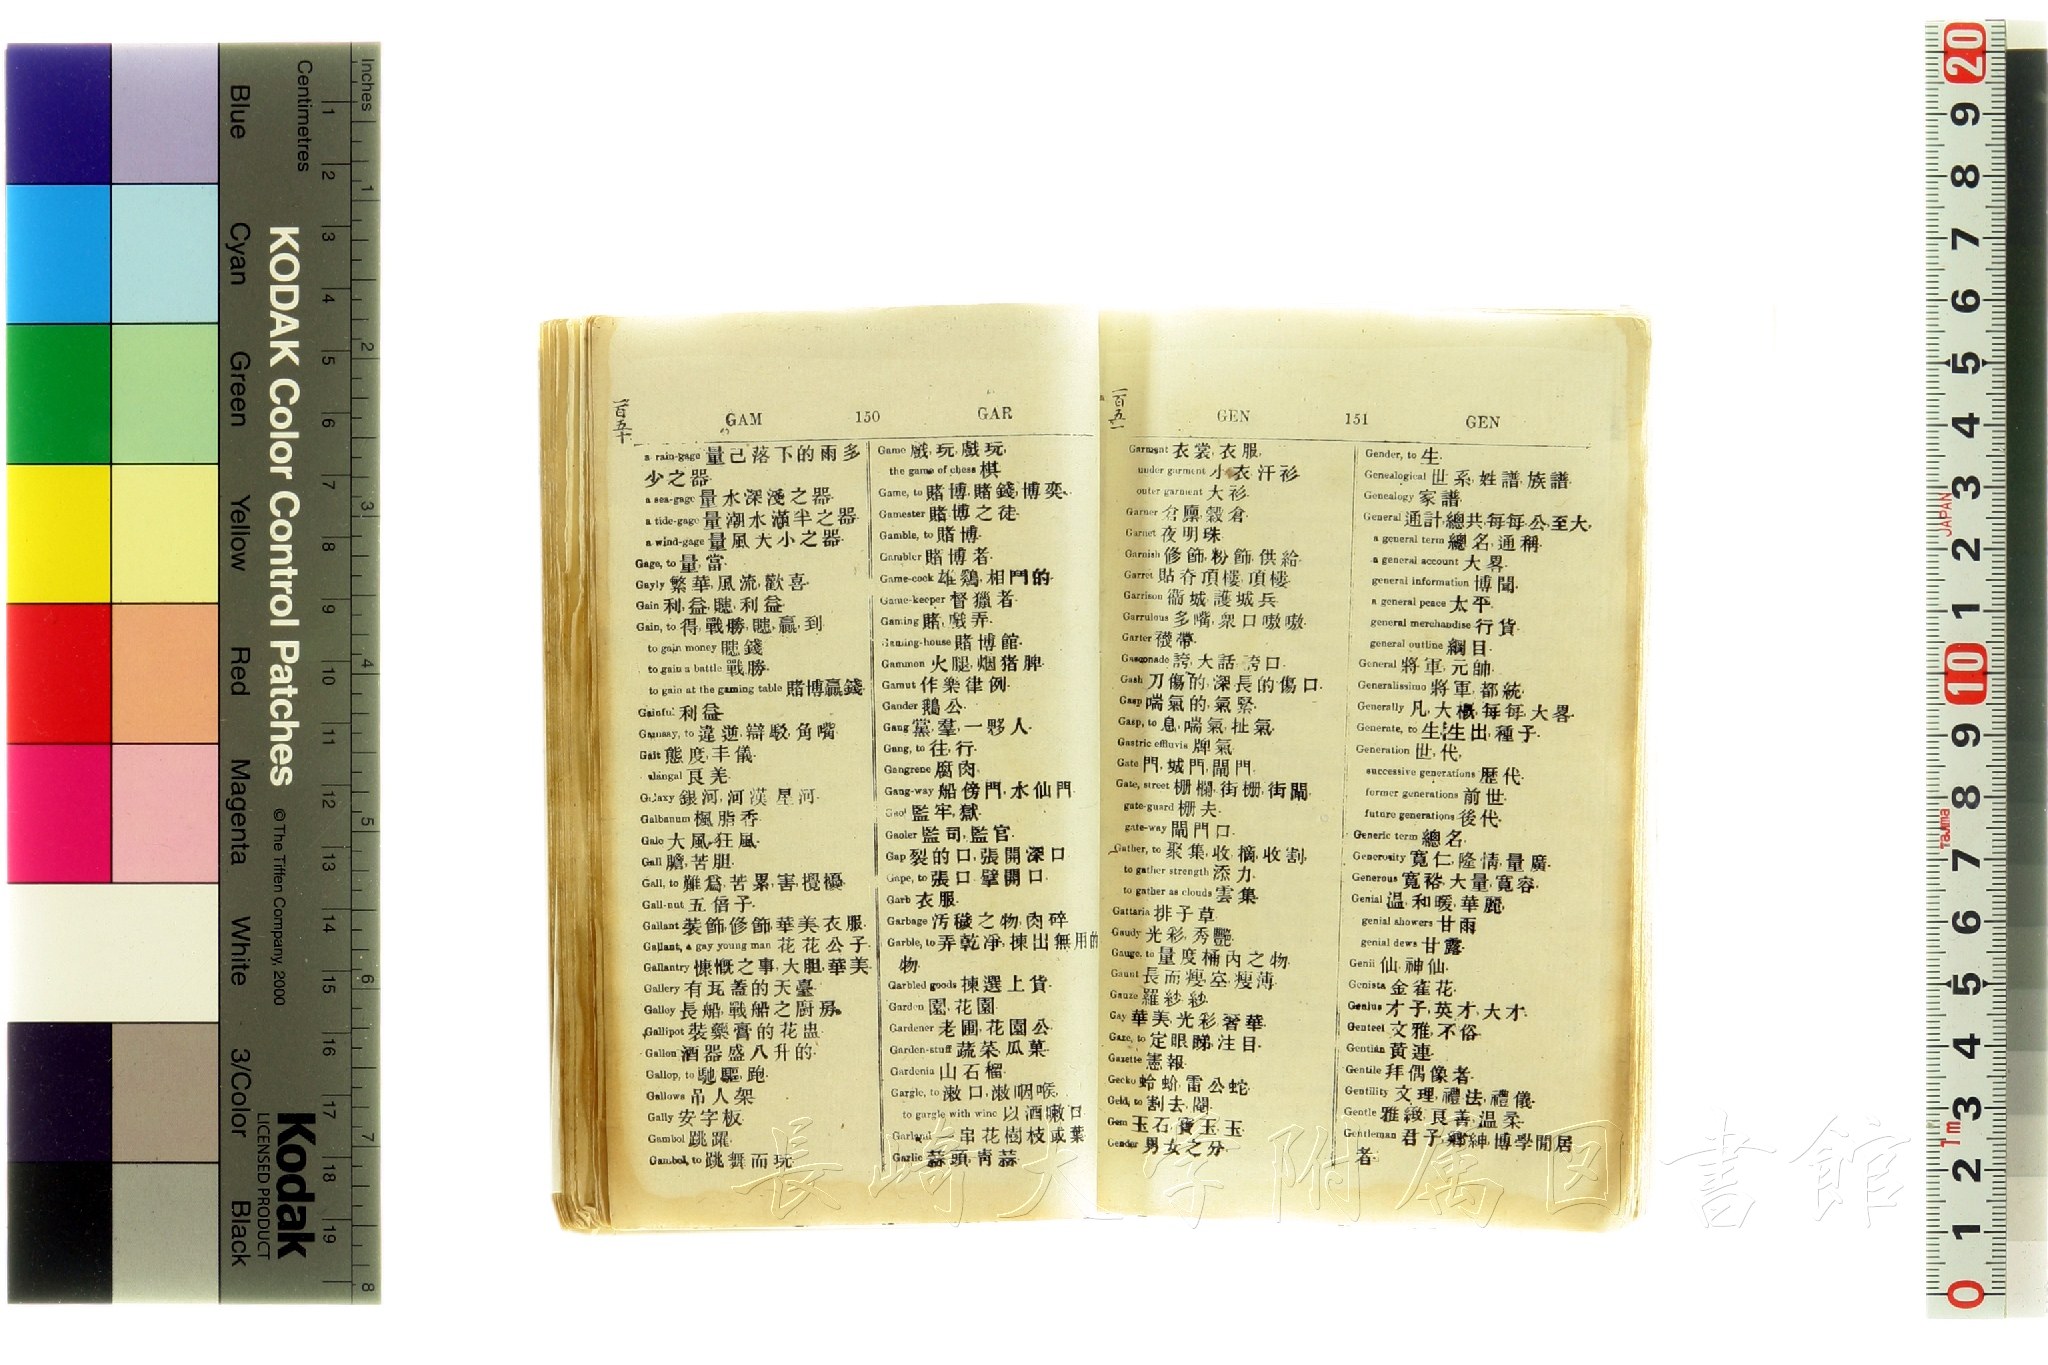 Inches
Centimetres
KODAK Color Control Patches
© The Tiffen Company, 2000
Kodak
LICENSED PRODUCT
Blue
Cyan
Green
Yellow
Red
Magenta
White
3/Color
Black
一百五十
GAM 150 GAR
a rain-gage 量己落下的雨多
少之器
a sea-gage 量水深淺之器
a tide-gage 量潮水滿半之器
a wind-gage 量風大小之器
Gage, to 量, 當
Gayly 繁華, 風流, 歡喜
Gain 利, 益, 賺, 利益
Gain, to 得, 戰勝, 賺, 贏, 到
to gain money 賺錢
to gain a battle 戰勝
to gain at the gaming table 賭博贏錢
Gainful 利益
Gainsay, to 違逆, 辯駁, 角嘴
Gait 態度, 丰儀
Galangal 良羌
Galaxy 銀河, 河漢, 星河
Galbanum 楓脂香
Gale 大風, 狂風
Gall 膽, 苦胆
Gall, to 難爲, 苦累, 害, 攪擾
Gall-nut 五倍子
Gallant 裝飾, 修飾, 華美衣服
Gallant, a gay young man 花花公子
Gallantry 慷慨之事, 大胆, 華美
Gallery 有瓦蓋的天臺
Galloy 長船, 戰船之廚房
Gallipot 裝藥膏的花盅
Gallon 酒器盛八升的
Gallop, to 馳驅, 跑
Gallows 吊人架
Gally 安字板
Gambol 跳躍
Gambol, to 跳舞而玩
Game 戲, 玩, 戲玩
the game of chess 棋
Game, to 賭博, 賭錢, 博奕
Gamester 賭博之徒
Gamble, to 賭博
Gambler 賭博者
Game-cock 雄鷄, 相鬥的
Game-keeper 督獵者
Gaming 賭, 戲弄
Gaming-house 賭博館
Gammon 火腿, 烟猪脾
Gamut 作樂律例
Gander 鵝公
Gang 黨, 羣, 一夥人
Gang, to 往, 行
Gangrene 腐肉
Gang-way 船傍門, 水仙門
Gaol 監牢, 獄
Gaoler 監司, 監官
Gap 裂的口, 張開深口
Gape, to 張口, 擘開口
Garb 衣服
Garbage 汚穢之物, 肉碎
Garble, to 弄乾凈, 揀出無用的
物
Garbled goods 揀選上貨
Garden 園, 花園
Gardener 老圃, 花園公
Garden-stuff 蔬菜, 瓜菓
Gardenia 山石榴
Gargle, to 漱口, 漱咽喉
to gargle with wine 以酒嗽口
Garland 一串花樹枝或葉
Garlic 蒜頭, 靑蒜
一百五一
GEN 151 GEN
Garment 衣裳, 衣服
under garment 小衣, 汗衫
outer garment 大衫
Garner 倉廩, 穀倉
Garnet 夜明珠
Garnish 修飾, 粉飾, 供給
Garret 貼夻頂樓, 頂樓
Garrison 衞城, 護城兵
Garrulous 多嘴, 衆口嗷嗷
Garter 襪帶
Gasconade 誇, 大話, 誇口
Gash 刀傷的, 深長的傷口
Gasp 喘氣的, 氣緊
Gasp, to 息, 喘氣, 扯氣
Gastric effluvia 脾氣
Gate 門, 城門, 閘門
Gate, street 柵欄, 街柵, 街閘
gate-guard 柵夫
gate-way 閘門口
Gather, to 聚集, 收, 摘, 收割
to gather strength 添力
to gather as clouds 雲集
Gattaria 排子草
Gaudy 光彩, 秀艷
Gauge, to 量度桶內之物
Gaunt 長而瘦, 空, 瘦薄
Gauze 羅紗, 紗
Gay 華美, 光彩, 奢華
Gaze, to 定眼睇, 注目
Gazette 憲報
Gecko 蛤蚧, 雷公蛇
Geld, to 割去, 閹
Gem 玉石, 寶玉, 玉
Gender 男女之分
Gender, to 生
Genealogical 世系, 姓譜, 族譜
Genealogy 家譜
General 通計, 總共, 每每, 公, 至大
a general term 總名, 通稱
a general account 大畧
general information 博聞
a general peace 太平
general merchandise 行貨
general outline 綱目
General 將軍, 元帥
Generalissimo 將軍, 都統
Generally 凡, 大概, 每每, 大畧
Generate, to 生, 生出, 種子
Generation 世, 代
successive generations 歷代
former generations 前世
future generations 後代
Generic term 總名
Generosity 寬仁, 隆情, 量廣
Generous 寬裕, 大量, 寬容
Genial 温, 和暖, 華麗
genial showers 甘雨
genial dews 甘露
Genii 仙, 神仙
Genista 金雀花
Genius 才子, 英才, 大才
Genteel 文雅, 不俗
Gentian 黃連
Gentile 拜偶像者
Gentility 文理, 禮法, 禮儀
Gentle 雅緻, 良善, 温柔
Gentleman 君子, 鄉紳, 博學閒居
者
長崎大学附属図書館
JAPAN
Tajima
1m